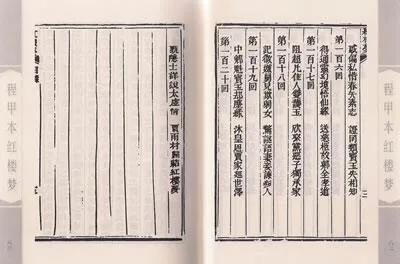 惑偏私惜春矢素志 證同類寶玉失相知
第一百十六回
得通靈幻境悟仙緣 送慈柩故鄉全孝道
第一百十七回
阻超凡佳人雙護玉 欣聚黨惡子獨承家
第一百十八回
記微嫌舅兄欺弱女 驚謎語妻妾諫癡人
第一百十九回
中鄉魁寶玉却塵緣 沐皇恩賈家延世澤
第一百二十回
甄隱士詳說太虛情 賈雨村歸結紅樓夢
程甲本红楼梦
程甲本红楼梦